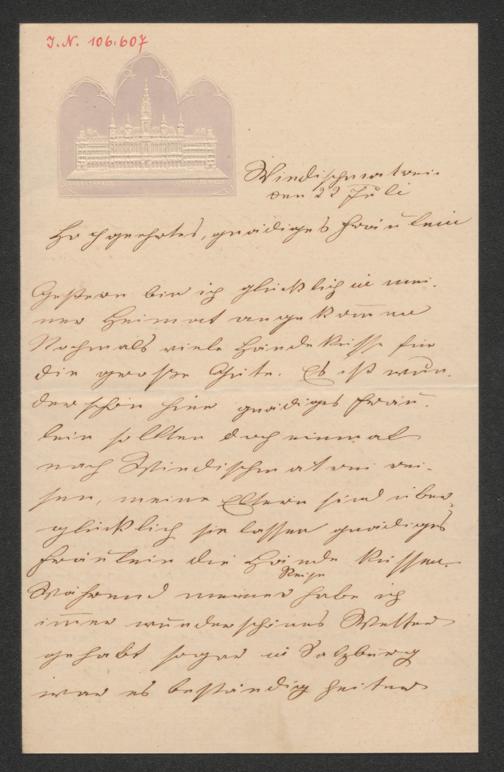 J.N. 106.607
Windischmatrei.
den 22 Juli
Hochgeehrtes, gnädiges Fräulein
Gestern bin ich glücklich in mei-
ner Heimat angekommen
Nochmals viele Handküsse für
die große Güte. Es ist wun-
derschön hier gnädiges Fräu-
lein sollten doch einmal
nach Windischmatrei rei-
sen, meine Eltern sind über-
glücklich sie lassen gnädiges
Fräulein die Hände küssen.
Reise
Während meiner habe ich
immer wunderschönes Wetter
gehabt sogar in Salzburg
war es beständig heiter